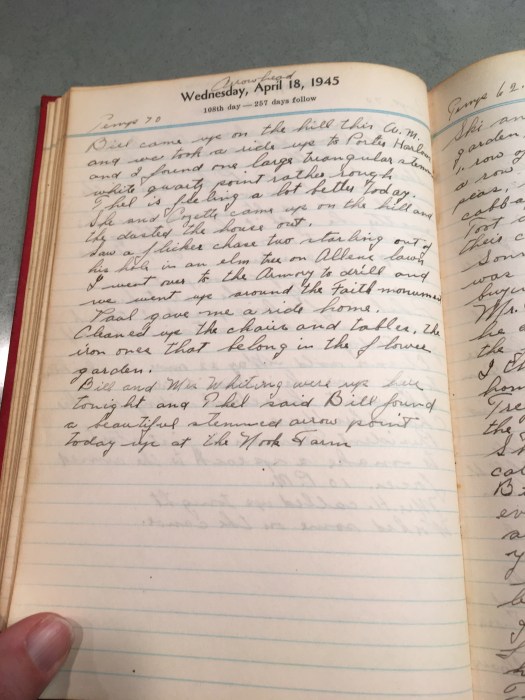 Arrowhead
Wednesday, April 18, 1945
108th day — 257 days follow
Temp 70
Bill came up on the hill this A.M.
and we took a ride up to Porter Harbor
and I found one large triangular stemm
white quartz point rather rough
Phel is feeling a lot better today.
She and came up on the hill and
they dusted the house out.
Saw a flicker chase two starling out of
his hole in an elm tree on Allens lawn
I went over to the Armory to drill and
we went up around the Faith monument
Paul gave me a ride home.
Cleaned up the chairs and tables. the
iron ones that belong in the flower
garden.
Bill and Mrs Whiting were up here
tonight and Phel said Bill found
a beautiful stemmed arrow point
today up at the Nook Farm
Temp 62.
Ski an
garden
1. row o
a row
peas.
cabba
Toot a
their c
was
buyin
Mr.
he a
the
I
hom
the
S
ca
B
ev
a
y